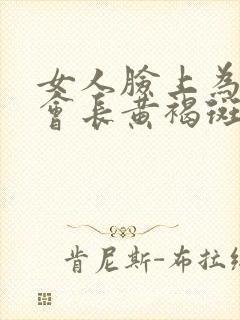 女人臉上為
會長黃褐斑
肯尼斯-布拉